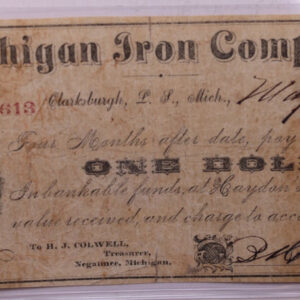 higan Iron Comp
613 Clarksburgh, L. S., Mich., May
Four Months after date, pay
ONE DOL
In bankable funds, at Haydon
value received, and charge to acc
To H. J. COLWELL,
Treasurer,
Negaunee, Michigan.